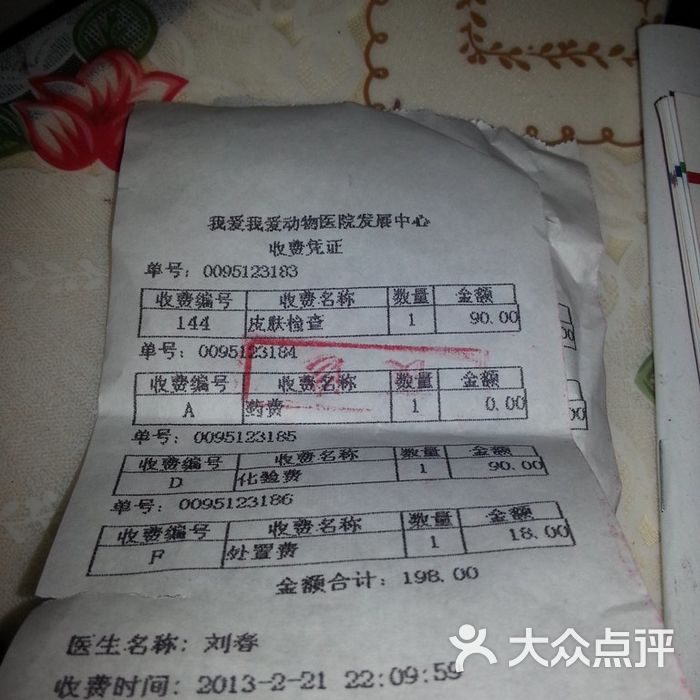 我爱我爱动物医院发展中心
收费凭证
单号: 0095123183
收费编号 收费名称 数量 金额
144 皮肤检查 1 90.00
单号: 0095123184
收费编号 收费名称 数量 金额
A 药费 1 0.00
单号: 0095123185
收费编号 收费名称 数量 金额
D 化验费 1 90.00
单号: 0095123186
收费编号 收费名称 数量 金额
F 处置费 1 18.00
金额合计: 198.00
医生名称: 刘春
收费时间: 2013-2-21 22:09:59
大众点评